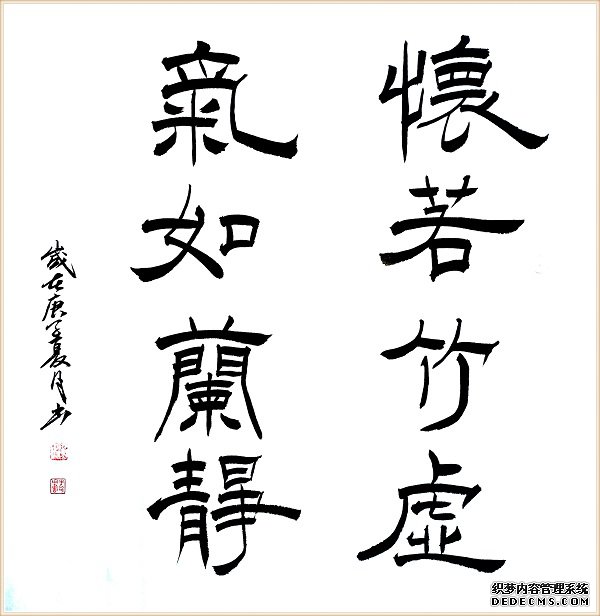 懷若竹虛
氣如蘭靜
歲在庚子夏月書
织梦内容管理系统
DEDECMS.COM